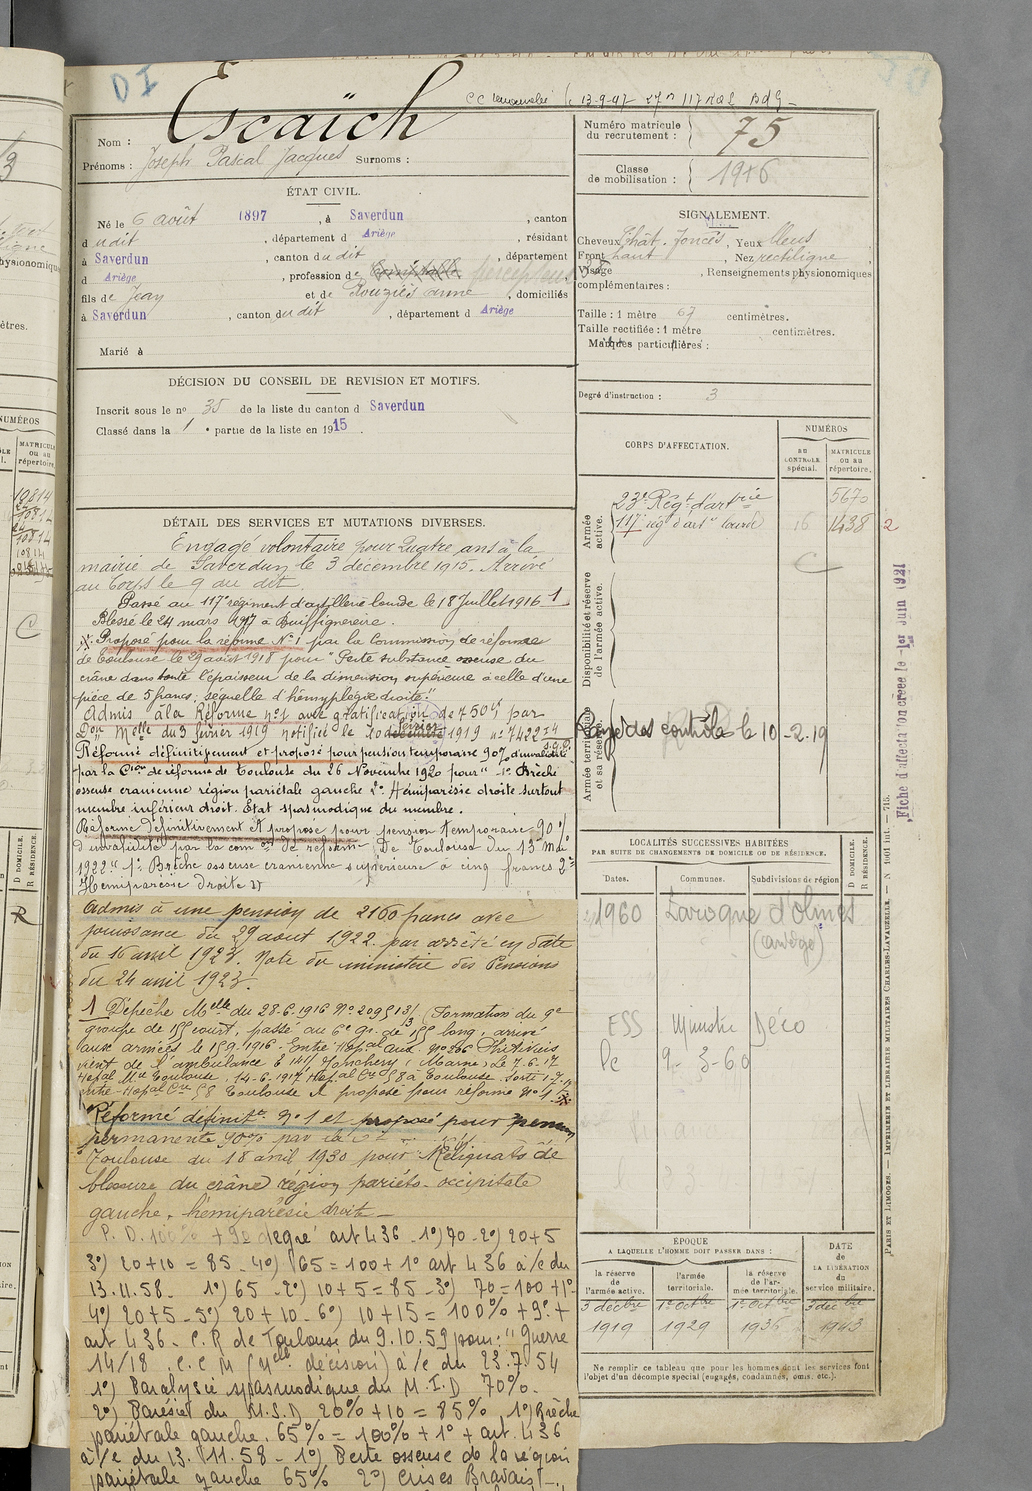 DI
Escaïch
Nom :
Prénoms : Joseph Pascal Jacques Surnoms :
Numéro matricule du recrutement : 75
Classe de mobilisation : 1916
ÉTAT CIVIL.
Né le 6 août 1897, à Saverdun, canton
dudit, département d Ariège, résidant
à Saverdun, canton dudit, département
d Ariège, profession de percepteur
fils de Jean et de Rouziès anne, domiciliés
à Saverdun, canton dudit, département d Ariège
Marié à
SIGNALEMENT.
Cheveux Chât. foncés, Yeux bleus
Front haut, Nez rectiligne
Visage , Renseignements physionomiques
complémentaires :
Taille : 1 mètre 67 centimètres.
Taille rectifiée : 1 mètre centimètres.
Marques particulières :
Degré d'instruction : 3
DÉCISION DU CONSEIL DE REVISION ET MOTIFS.
Inscrit sous le nº 35 de la liste du canton d Saverdun
Classé dans la 1e partie de la liste en 1915.
DÉTAIL DES SERVICES ET MUTATIONS DIVERSES.
Engagé volontaire pour Quatre ans à la
mairie de Saverdun le 3 décembre 1915. Arrivé
au Corps le 9 du dit
Passé au 117e régiment d'artillerie lourde le 18 Juillet 1916 1
Blessé le 24 mars 1917 à
Proposé pour la réforme Nº 1 par la Commission de réforme
de Toulouse le 29 août 1918 pour "Perte substance osseuse du
crâne dans toute l'épaisseur de la dimension supérieure à celle d'une
pièce de 5 francs ; séquelle d'hémiplégie droite"
Admis à la Réforme nº 1 avec gratification de 750f par
Don Melle du 3 février 1919 notifiée le 10 février 1919 nº 7422
Réformé définitivement et proposé pour pension temporaire 90% d'invalidité
par la Cion de réforme de Toulouse du 26 Novembre 1920 pour "1º Brèche
osseuse cranienne région pariétale gauche 2º Hémiparésie droite surtout
membre inférieur droit. État spasmodique du membre.
Réformé définitivement et proposé pour pension temporaire 90%
d'invalidité par la com on de réforme de Toulouse du 13 mai
1922 "1º Brèche osseuse cranienne supérieure à cinq francs 2º
Hemiparésie droite"
Admis à une pension de 2160 francs avec
jouissance du 29 aout 1922 par arrêté en date
du 16 avril 1923. Note du ministère des Pensions
du 24 avril 1923.
1 Dépêche Melle du 28.6.1916 Nº 2095 13/3 (Formation du 9e
groupe de 155 court, passé au 6e gr. de 155 long, arrivé
aux armées le 15 9.1916 - Entré Hopal aux. Nº 206
vient de l'ambulance à Jonchery (Marne) Le 7.6.17
Hopal Mre Toulouse, 14-6-1917 Hopal Cre 58 à Toulouse. Sorti
entré Hopal Cre 58 Toulouse et proposé pour réforme nº 1
Réformé définitt nº 1 et proposé pour pension
permanente 90% par la
Toulouse du 18 avril 1930 pour Reliquats de
blessure du crâne région pariéto-occipitale
gauche. hémiparésie droite -
P. D. 100% + 9º degré art 436 - 1º) 70 - 2º) 20+5
3º) 20+10 = 85 - 4º) 65 = 100 + 1º art 436 à/c du
13.11.58 1º) 65 - 2º) 10+5 = 85 - 3º) 70 = 100 + 1º
4º) 20+5 - 5º) 20+10 - 6º) 10+15 = 100% + 9º +
art 436 - C.R de Toulouse du 9.10.59 pour : "Guerre
14/18 C.C.M (Nelle décision) à/c du 23.7.54
1º) Paralysie spasmodique du M.I.D 70% -
2º) Parésie du M.S.D 20% + 10 = 85% 1º) Brèche
pariétale gauche. 65% = 100% + 1º + art. 436
à/c du 13.11.58 - 1º) Perte osseuse de la région
pariétale gauche 65% 2º) Crises Bravais
CORPS D'AFFECTATION.
NUMÉROS
au CONTROLE spécial.
MATRICULE ou au répertoire.
Armée active.
23e Régt d'artrie 5670
117e rég d'artie lourde 16 1438 2
Disponibilité et réserve de l'armée active.
Armée territoriale et sa réserve.
Rayé des contrôles le 10-2-19
Fiche d'affectation créée le 1er Juin 1921
LOCALITÉS SUCCESSIVES HABITÉES
PAR SUITE DE CHANGEMENTS DE DOMICILE OU DE RÉSIDENCE.
D DOMICILE. R RÉSIDENCE.
Dates. Communes. Subdivisions de région
1960 Laroque d'Olmes
(Ariège)
ESS Ministre Déco
le 9-3-60
ÉPOQUE
A LAQUELLE L'HOMME DOIT PASSER DANS :
DATE DE LA LIBÉRATION du service militaire.
la réserve de l'armée active.
l'armée territoriale.
la réserve de l'armée territoriale.
3 décbre 1919
1er octbre 1929
1er octbre 1936
3 décbre 1943
Ne remplir ce tableau que pour les hommes dont les services font
l'objet d'un décompte spécial (engagés, condamnés, omis, etc.).
PARIS ET LIMOGES. — IMPRIMERIE ET LIBRAIRIE MILITAIRES CHARLES-LAVAUZELLE.